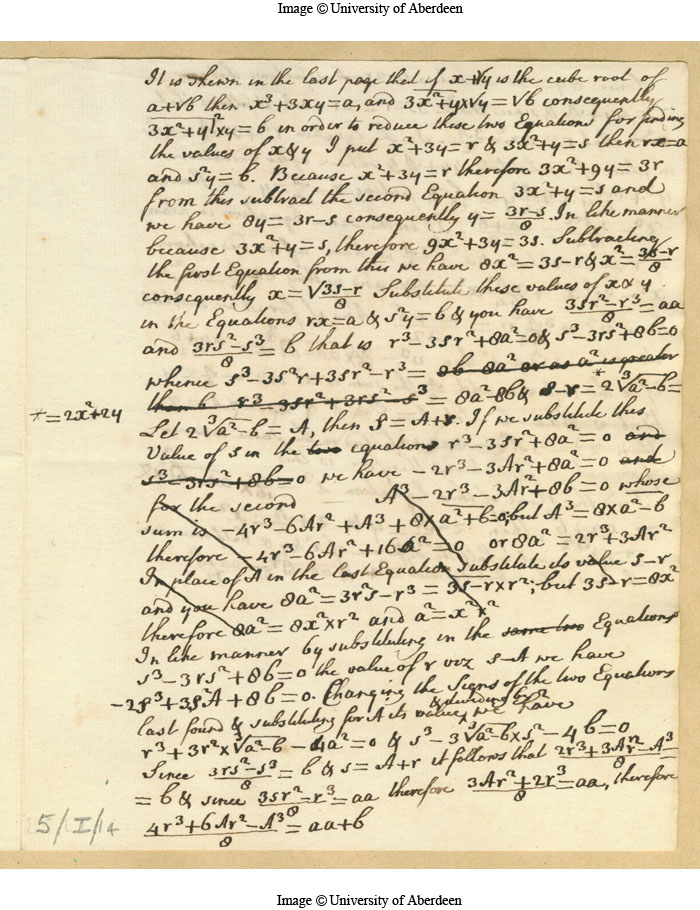 Image © University of Aberdeen
It is shewn in the last page that if x+√y is the cube root of
a+√b then x³+3xy=a, and 3x²+y×√y=√b consequently
3x²+y|²×y=b in order to reduce these two Equations for finding
the values of x & y I put x²+3y=r & 3x²+y=s then rx=a
and s²y=b. Because x²+3y=r therefore 3x²+9y=3r
from this subtract the second Equation 3x²+y=s and
we have 8y=3r-s consequently y=3r-s/8. In like manner
because 3x²+y=s, therefore 9x²+3y=3s. Subtracting
the first Equation from this we have 8x²=3s-r & x²=3s-r/8
consequently x=√3s-r/8 Substitute these values of x & y
in the Equations rx=a & s²y=b & you have 3sr²-r³/8=aa
and 3rs²-s³/8=b that is r³-3sr²+8a²=0 & s³-3rs²+8b=0
whence s³-3s²r+3sr²-r³= 8b-8a² or as a² is greater
than b r³-3sr²+3rs²-s³=8a²-8b & s-r=2∛a²-b=
*=2x²+2y
Let 2∛a²-b=A, then s=A+r. If we substitute this
Value of s in the two equations r³-3sr²+8a²=0 and
s³-3rs²+8b=0 we have -2r³-3Ar²+8a²=0 and
for the second A³-2r³-3Ar²+8b=0 whose
sum is -4r³-6Ar²+A³+8×a²+b=0; but A³=8×a²-b
therefore -4r³-6Ar²+16a²=0 or 8a²=2r³+3Ar²
In place of A in the last Equation Substitute its value s-r
and you have 8a²=3r²s-r³=3s-r×r²; but 3s-r=8x²
therefore 8a²=8x²×r² and a²=x²r²
In like manner by substituting in the same two Equations
s³-3rs²+8b=0 the value of r viz s-A we have
-2s³+3s²A+8b=0. Changing the signs of the two Equations
& dividing by 2
last found & substituting for A its value, we have
r³+3r²×∛a²-b-4a²=0 & s³-3∛a²-b×s²-4b=0
Since 3rs²-s³/8=b & s=A+r it follows that 2r³+3Ar²-A³/8
=b & since 3sr²-r³/8=aa therefore 3Ar²+2r³/8=aa, therefore
4r³+6Ar²-A³/8=aa+b
5/I/14
Image © University of Aberdeen